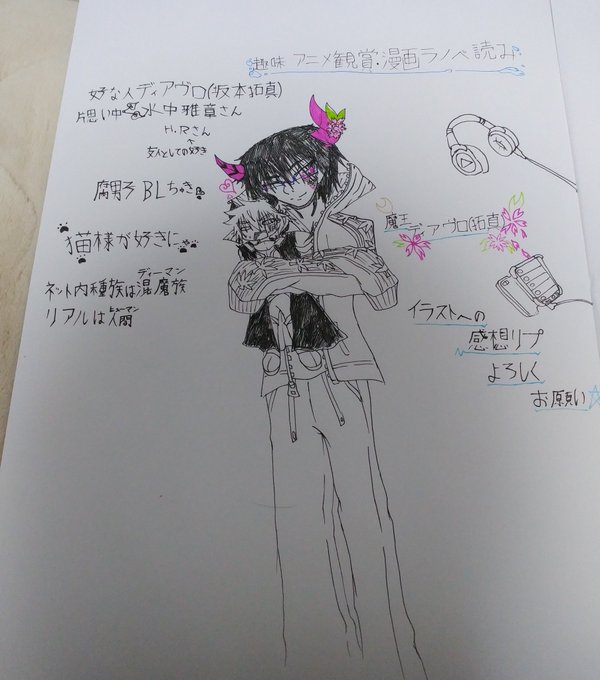 趣味 アニメ観賞:漫画ラノベ読み
好な人ディアヴロ(坂本拓真)
片思い中 水中雅章さん
H.Rさん
友人としての好き
腐男子 BLちゅき
猫様が好きに
魔王
ディアヴロ(拓真)
ディーマン
ネット内種族は混魔族
ヒューマン
リアルは人間
イラストへの
感想リプ
よろしく
お願い